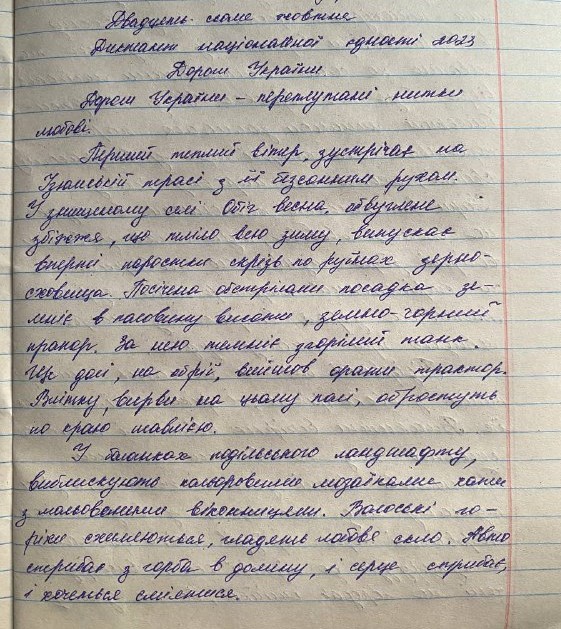 Двадцять сьоме жовтня
Диктант національної єдності 2023
Дороги України
Дороги України – переплутані нитки
любові.
Перший теплий вітер зустрічає на
Ізюмській трасі з її безсонним рухом.
У знищеному селі Обіч весна, обвуглене
збіжжя, що тліло всю зиму, випускає
вперті паростки крізь по руїнах зерно-
сховища. Посічена обстрілами посадка зе-
ленів в половину висоти, земно-горний
прапор. За нею темніє згорілий танк.
Ще далі, на обрії, вийшов орати трактор.
Влітку, вирви на цьому полі, обростуть
по краю шавлією.
У балках подільського ландшафту,
виблискують кольоровими мозаїками хати
з мальованими віконницями. Волоські го-
ріхи схиляються, гладять лобове скло. Авто
стрибає з горба в долину, і серце стрибає,
і хочеться сміятися.